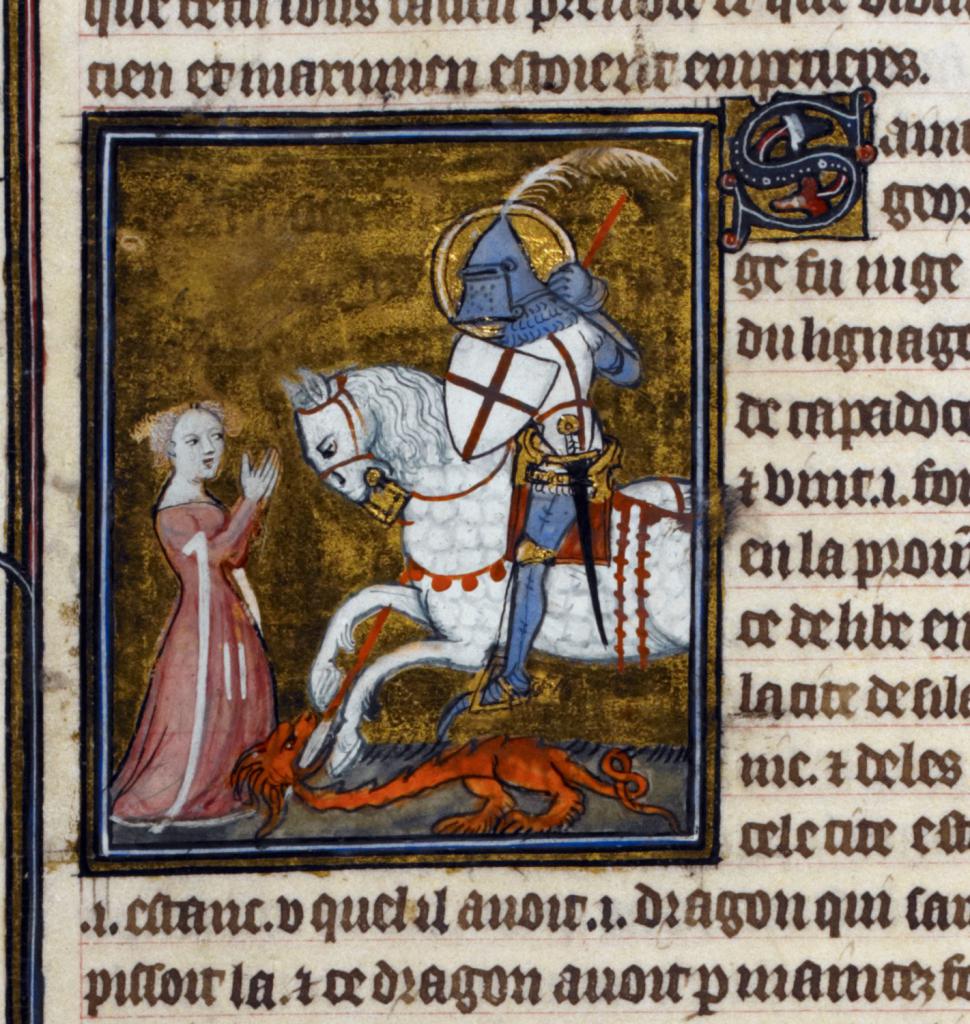 que cetui dous
cien et maximien estoient empereres.
Saint
geor
ge fu nige
du lignage
de capadoce
⁊ vint .i. foi
en la prouin
ce de libe en
la cite de sile
nic. ⁊ deles
cele cite est
.i. estanc. v quel il auoit .i. dragon qui
pissoit la. ⁊ ce dragon auoit p maintez